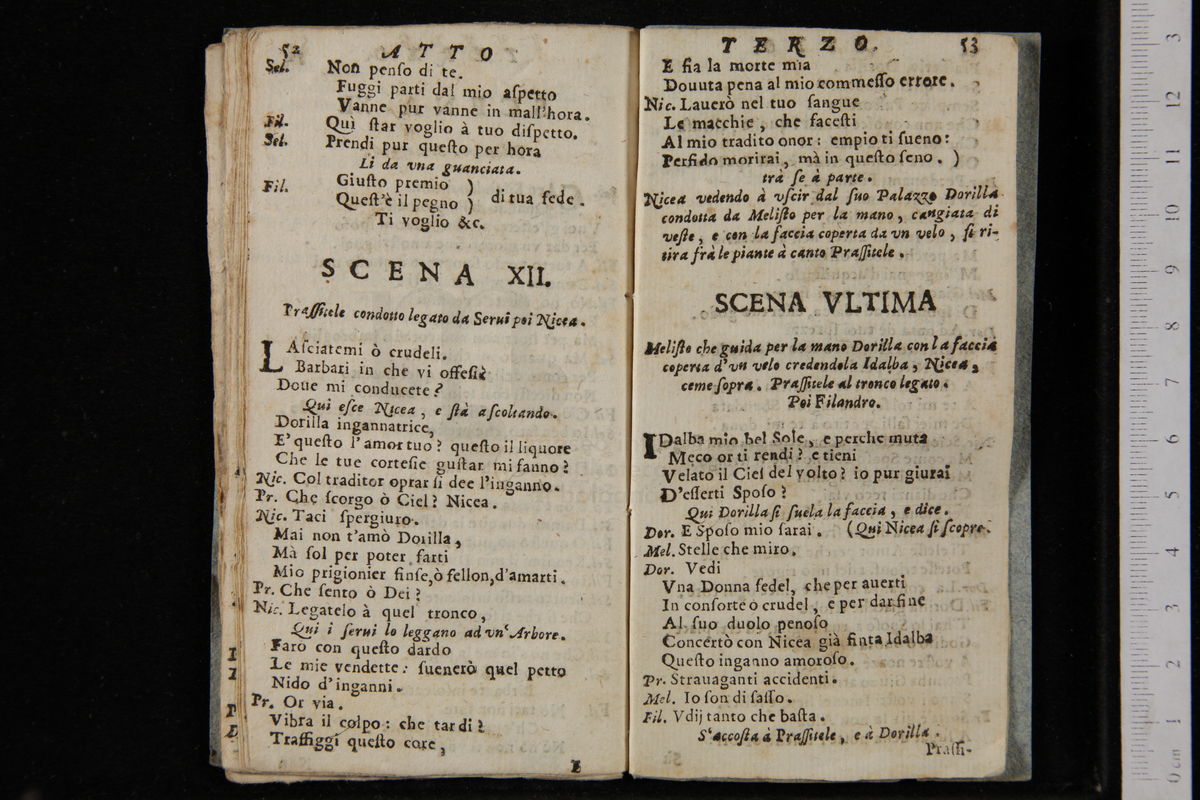 52
ATTO
Sel. Non penſo di te.
Fuggi parti dal mio aſpetto
Vanne pur vanne in mall'hora.
Fil. Quì ſtar voglio à tuo diſpetto.
Sel. Prendi pur queſto per hora
Li da vna guanciata.
Fil. Giuſto premio )
Queſt'è il pegno ) di tua fede.
Ti voglio &c.
SCENA XII.
Praſſitele condotto legato da Serui poi Nicea.
LAſciatemi ò crudeli.
Barbari in che vi offeſi?
Doue mi conducete?
Qui eſce Nicea, e ſtà aſcoltando.
Dorilla ingannatrice,
E' queſto l'amor tuo? queſto il liquore
Che le tue corteſie guſtar mi fanno?
Nic. Col traditor oprar ſi dee l'inganno.
Pr. Che ſcorgo ò Ciel? Nicea.
Nic. Taci ſpergiuro.
Mai non t'amò Dorilla,
Mà ſol per poter farti
Mio prigionier finſe, ò fellon, d'amarti.
Pr. Che ſento ò Dei?
Nic. Legatelo à quel tronco,
Qui i ſerui lo leggano ad vn' Arbore.
Farò con queſto dardo
Le mie vendette: ſuenerò quel petto
Nido d'inganni.
Pr. Or via.
Vibra il colpo: che tardi?
Traffiggi queſto core,
E
TERZO.
53
E ſia la morte mia
Douuta pena al mio commeſſo errore.
Nic. Lauerò nel tuo ſangue
Le macchie, che faceſti
Al mio tradito onor: empio ti ſueno:
Perfido morirai, mà in queſto ſeno. )
trà ſe à parte.
Nicea vedendo à vſcir dal ſuo Palazzo Dorilla
condotta da Meliſto per la mano, cangiata di
veſte, e con la faccia coperta da vn velo, ſi ri-
tira frà le piante à canto Praſſitele.
SCENA VLTIMA
Meliſto che guida per la mano Dorilla con la faccia
coperta d'vn velo credendola Idalba, Nicea,
come ſopra. Praſſitele al tronco legato.
Poi Filandro.
IDalba mio bel Sole, e perche muta
Meco or ti rendi? e tieni
Velato il Ciel del volto? io pur giurai
D'eſſerti Spoſo?
Qui Dorilla ſi ſuela la faccia, e dice.
Dor. E Spoſo mio ſarai. (Qui Nicea ſi ſcopre.
Mel. Stelle che miro.
Dor. Vedi
Vna Donna fedel, che per auerti
In conſorte ò crudel, e per dar fine
Al ſuo duolo penoſo
Concertò con Nicea già finta Idalba
Queſto inganno amoroſo.
Pr. Strauaganti accidenti.
Mel. Io ſon di ſaſſo.
Fil. Vdij tanto che baſta.
S'accoſta à Praſſitele, e à Dorilla.
Praſſi-